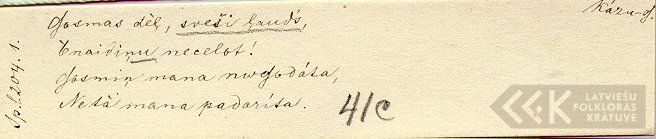 Kāzu-dz.
Josmas dēļ, sveši ļaud's,
Enaidiņu necelat!
Josmiņ mana nwogodāta,
Netā mana padarīta.
41c
LATVIEŠU
FOLKLORAS
KRĀTUVE